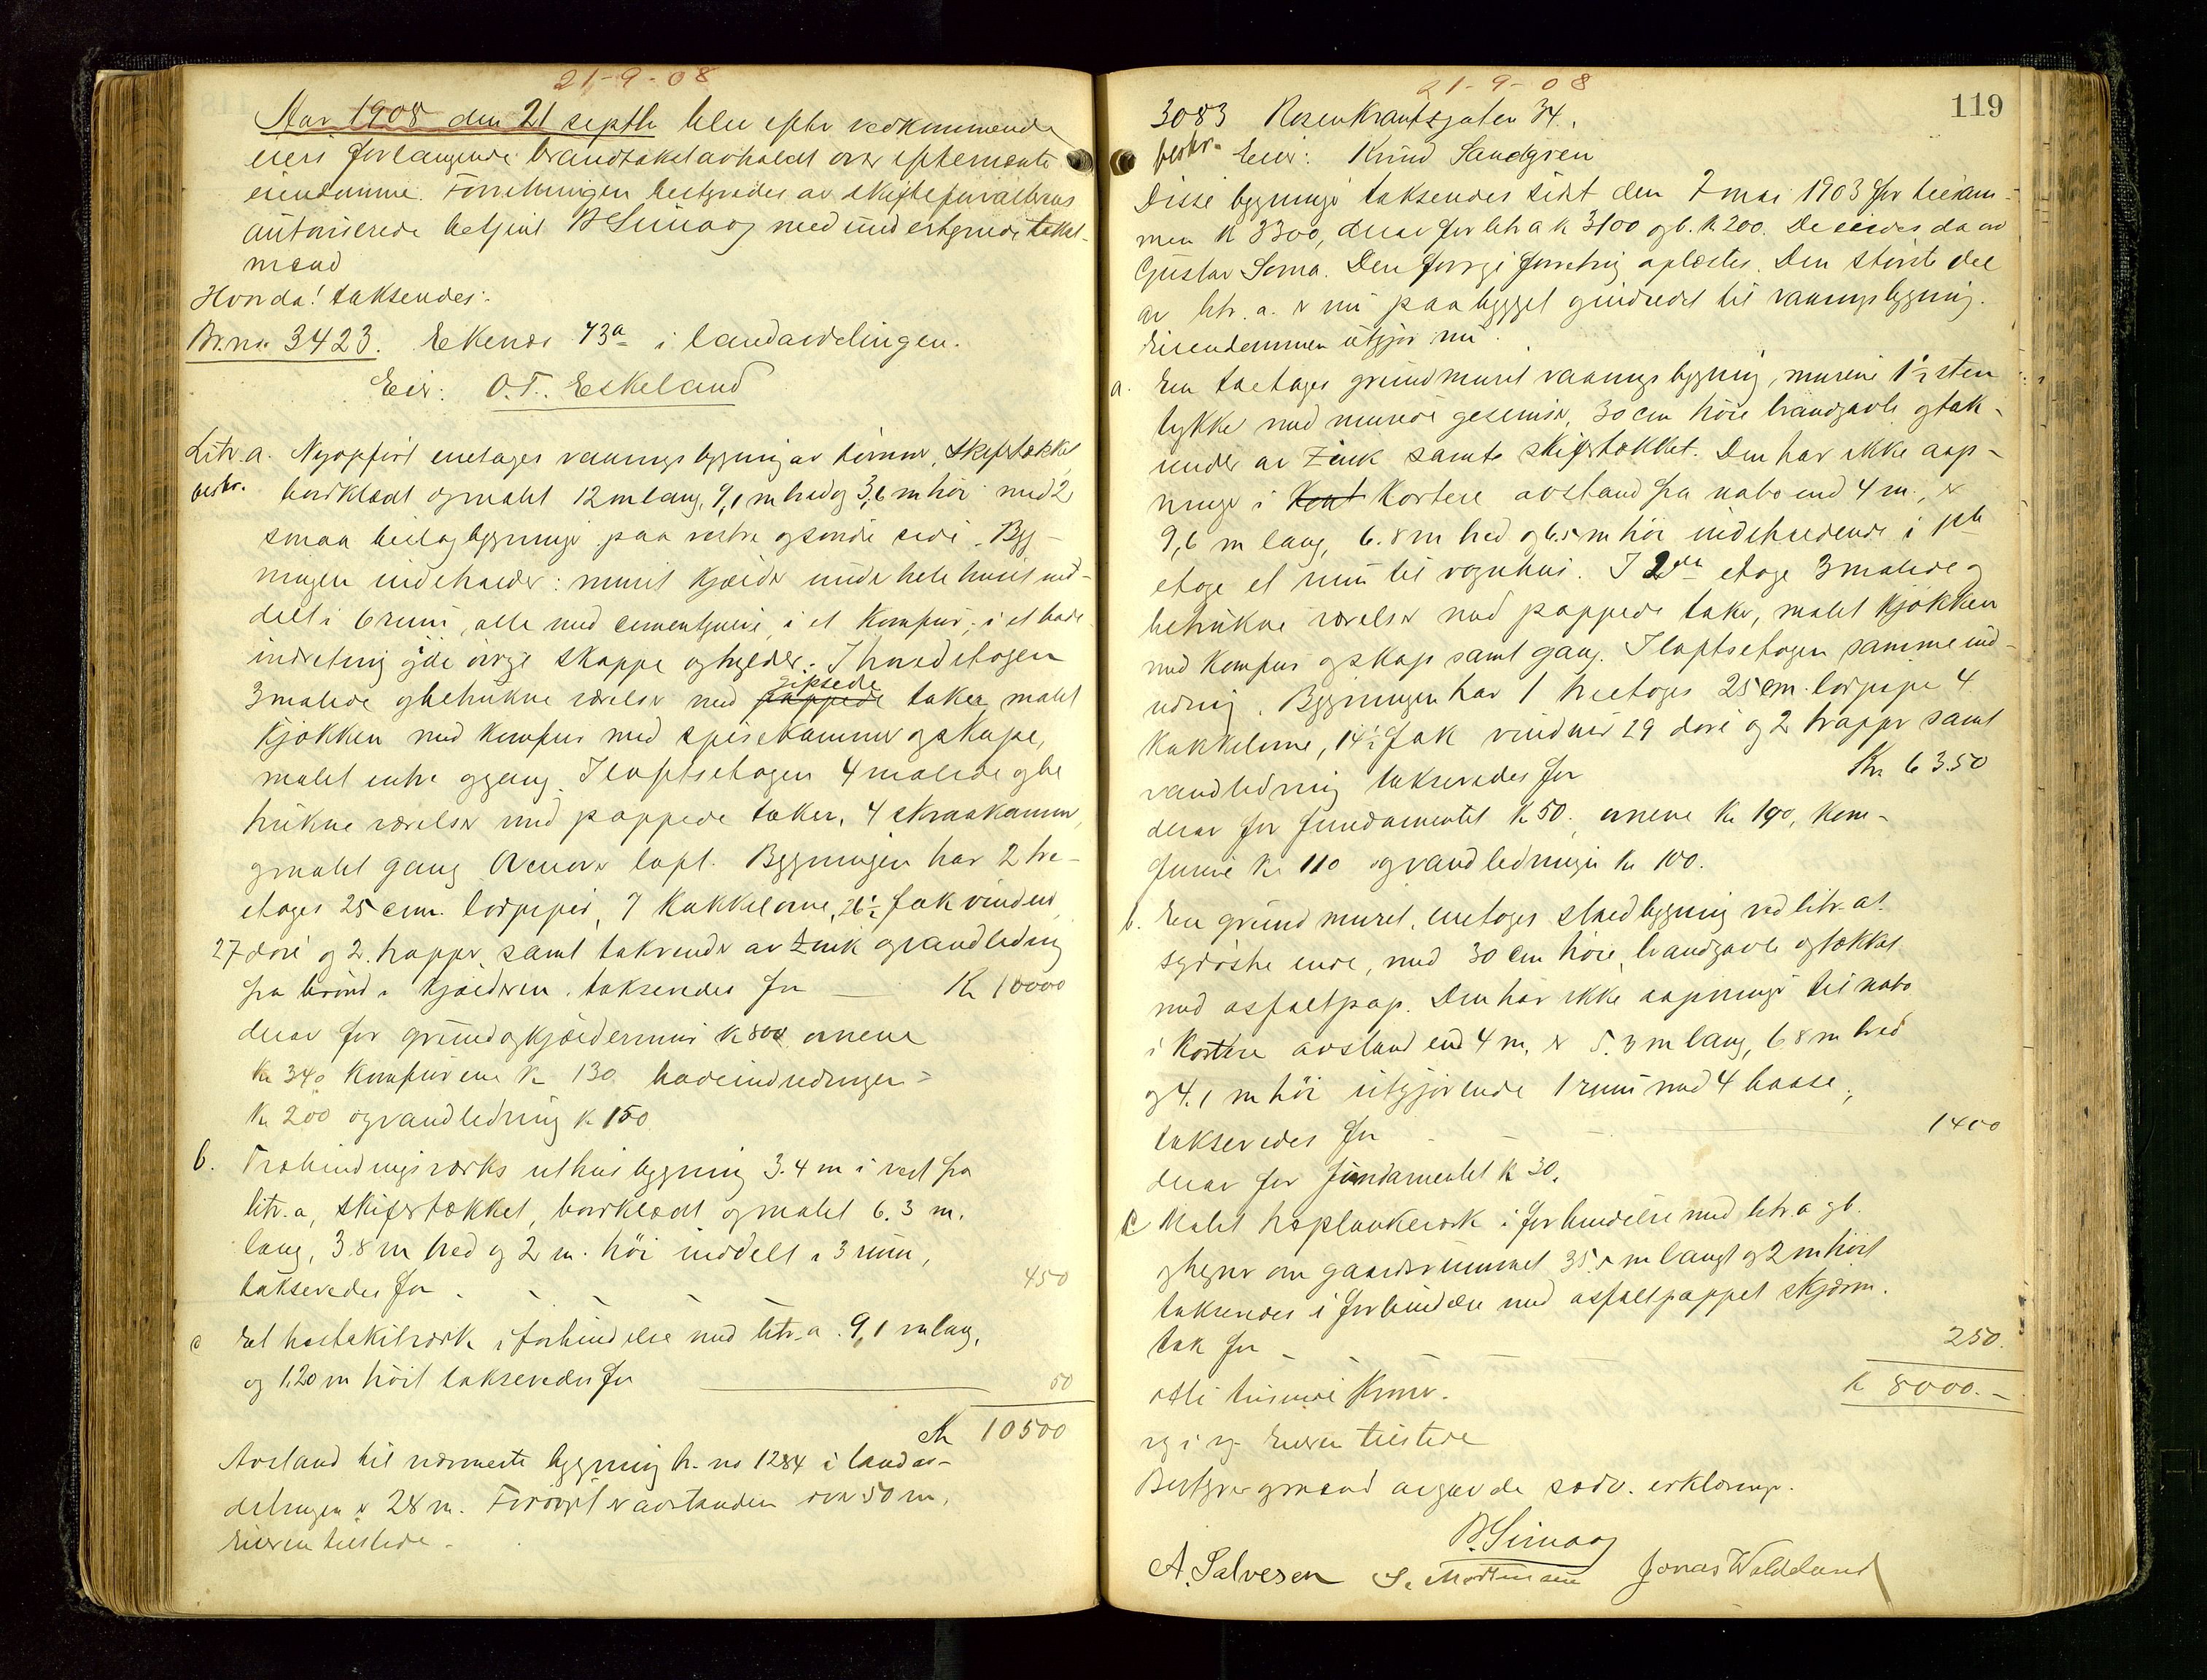 21-9-08
Aar 1908 den 21 septbr blev efter vedkommende
eiers forlangende brandtakst avholdt over efternævnte
eiendomme. Forretningen bestyredes av skifteforvalterens
autoriserede betjent B Simaog med undertegnede takst-
mænd
Hvorda! takseredes:
Br.no. 3423. Ekenæs 73a i landavdelingen.
Eier: O.T. Eskeland
Litr. a. Nyopført enetages vaaningsbygning av tømmer, skifertækket
beskr. bordklædt og malet 12 m lang, 9,1 m bred og 3,6 m høi med 2
smaa bislagbygninger paa vestre og søndre side. Byg-
ningen indeholder: muret kjælder under hele huset ind-
delt i 6 rum, alle med cementgulve, i et komfur, i et bade-
indretning i de øvrige skappe og hylder. I hovedetagen
3 malede og betrukne værelser med pappede gipsede taker, malet
kjøkken med komfur med spisekammer og skape,
malet entre og gang. I loftsetagen 4 malede og be
trukne værelser med pappede taker, 4 skraakammer,
og malet gang. Ovenover loft. Bygningen har 2 tre-
etages 25 cm. lodpiper, 7 kakkelovne, 26½ fak vinduer,
27 døre og 2 trapper, samt takrender av zink og vandledning
fra brønd i kjælderen. takseredes for — Kr 10000
derav for grund og kjældermur kr 800 ovnene
Kr 340 komfurene Kr 130 badeindredningen
Kr 200 og vandledning kr 150.
b. Træbindingsværks uthusbygning 3.4 m i vest fra
litr. a, skifertækket, bordklædt og malet 6.3 m.
lang, 3.8 m bred og 2 m. høi inddelt i 3 rum,
takseredes for - - - - - 450
c Et hvitstakitværk i forbindelse med litr. a. 9,1 m lang,
og 1.20 m høit takseredes for — 50
Kr 10500
Avstand til nærmeste bygning br. no 1284 i landav-
delingen er 28 m. Forøvrigt er avstanden over 50 m.
Eieren tilstede.
21-9-08
119
3083 Rosenkrantsgaten 34.
beskr. Eier: Knud Sandgren
Disse bygninger takseredes sidst den 7 mai 1903 for tilsam-
men kr 3300, derav for litr a kr 3100 og b. kr 200. De eiedes da av
Gustav Soma. Den forrige forretning oplæstes. Den største del
av litr. a. er nu paabygget og indredet til vaaningsbygning.
Eiendommen utgjør nu:
a. En toetages grundmuret vaaningsbygning, murene 1½ sten
tykke med murede gesemser, 30 cm høie brandgavle og tak-
render av zink samt skifertækket. Den har ikke aap-
ninger i kort kortere avstand fra nabo end 4 m., er
9,6 m lang, 6.8 m bred og 6.5 m høi indeholdende i 1ste
etage et rum til vognhus. I 2den etage 3 malede og
betrukne værelser med pappede taker, malet kjøkken
med komfur og skap samt gang. I loftsetagen samme ind-
redning. Bygningen har 1 treetages 25 cm. lodpipe 4
kakkelovne, 14½ fak vinduer 19 døre og 2 trapper samt
vandledning takseredes for Kr 6350
derav for fundamentet kr 50. ovnene Kr 190, kom-
furene Kr 110 og vandledningen Kr 100.
b. En grundmuret, enetages staldbygning ved litr. a's
sydøstre ende, med 30 cm høie, brandgavle og tækket
med asfaltpap. Den har ikke aapninger til nabo
i kortere avstand end 4 m, er 5.3 m lang, 6.8 m bred
og 4.1 m høi utgjørende 1 rum med 4 baase.
takseredes for - - - 1400
derav for fundamentet kr 30.
c Malet træplankeværk i forbindelse med litr. a og b.
og hegner om gaardsrummet 35.5 m langt og 2 m høit
takseredes i forbindelse med asfaltpappet skjærm.
tak for - - 250.
otte tusende Kroner. kr 8000.-
Eieren tilstede
Bestyrer og mænd avgav de sædv. erklæringer.
B. Simaog
A. Salvesen S. Mortensen Jonas Waldeland